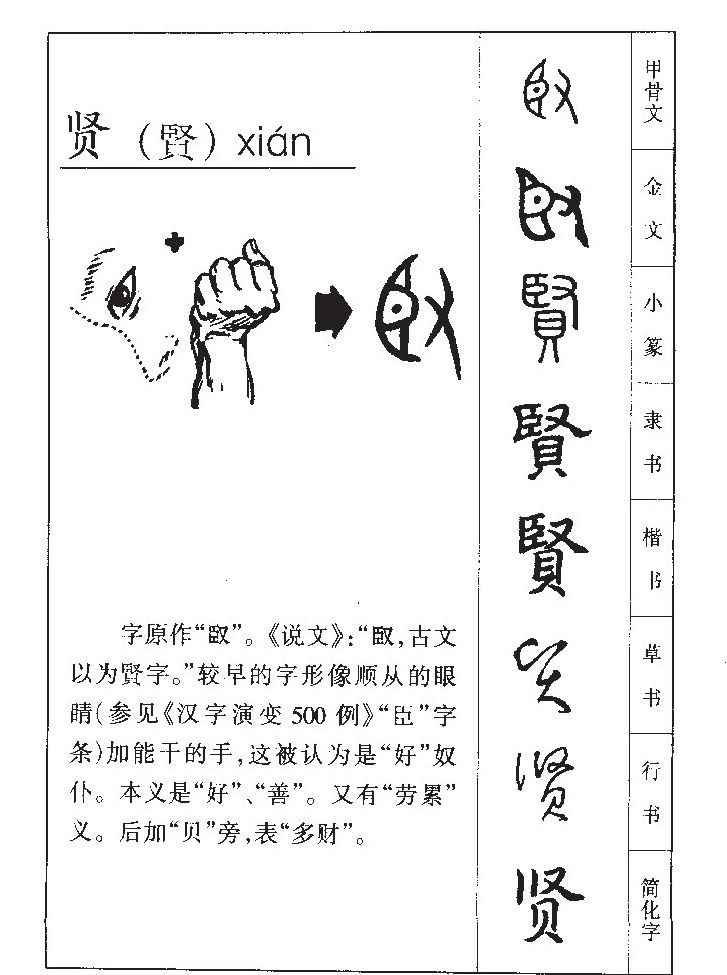 贤（賢）xián
字原作“臤”。《说文》：“臤，古文
以为賢字。”较早的字形像顺从的眼
睛（参见《汉字演变 500 例》“臣”字
条）加能干的手，这被认为是“好”奴
仆。本义是“好”、“善”。又有“劳累”
义。后加“贝”旁，表“多财”。
臤
甲骨文
臤
金文
賢
小篆
賢
隶书
賢
楷书
贤
草书
贤
行书
贤
简化字